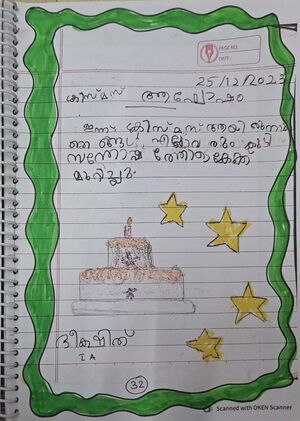 PAGE NO.
DATE:
25/12/2023
ക്രിസ്മസ് ആഘോഷം
ഇന്ന് ക്രിസ്മസ് ആയി
ഞങ്ങൾ എല്ലാവരും കൂടി
സന്തോഷത്തോടെ കേക്ക്
മുറിച്ചു.
ദീക്ഷിത്
I A
32
Scanned with OKEN Scanner